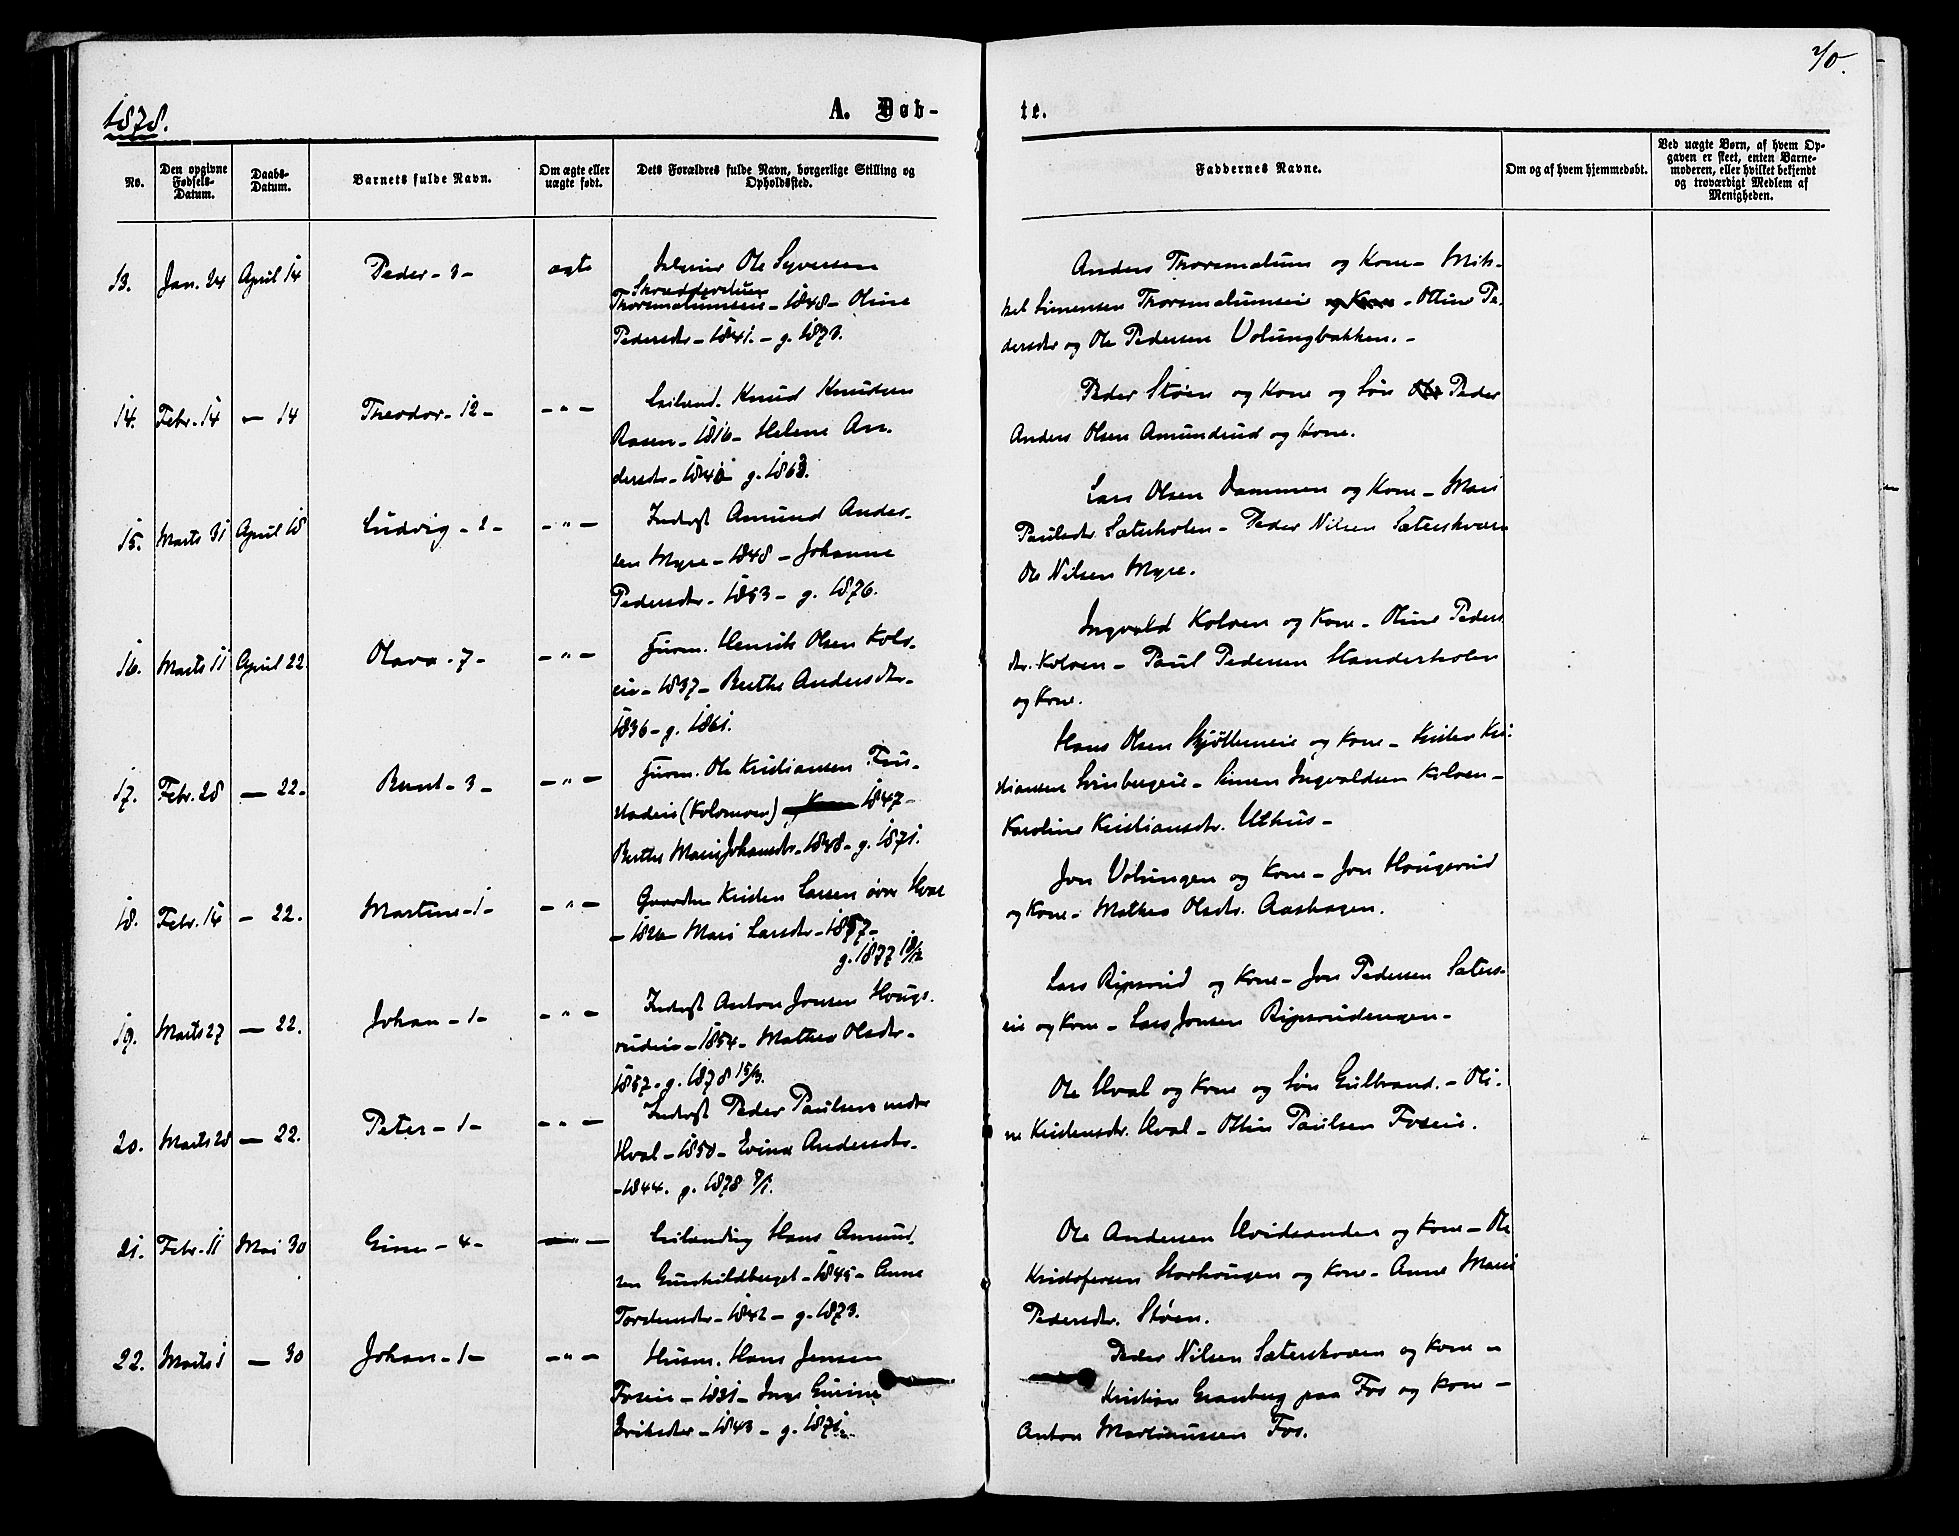 1878.
A. Døb-
te.
No.
Den opgivne Fødsels-Datum.
Daabs-Datum.
Barnets fulde Navn.
Om ægte eller uægte født.
Dets Forældres fulde Navn, borgerlige Stilling og Opholdssted.
Faddernes Navne.
Om og af hvem hjemmedøbt.
Ved uægte Børn, af hvem Opgaven er skeet, enten Barnemoderen, eller hvilket bekjendt og troværdigt Medlem af Menigheden.
13. Jan. 24 April 14 Peder - 3 - ægte Ole Syversen
Thorsmalumseie - 1848 - Oline
Pedersdtr - 1841. - g. 1873.
Anders Thorsmalum og Kone - Mik-
kel Simensen Thorsmalumseie og Kone - Ottine Pe-
dersdtr og Ole Pedersen Volungbakken. -
14. Febr. 14 — 14 Theodor - 12 - - " - Leilænd. Knud Knudsen
Rasen - 1816 - Helene An-
dersdtr - 1840 g. 1863.
Peder Støen og Kone og Søn Ole Peder
Anders Olsen Amundrud og Kone.
15. Marts 31 April 18 Ludvig - 2 - - " - Inderst Amund Ander-
sen Myre - 1848 - Johanne
Pedersdtr - 1853 - g. 1876.
Lars Olsen Dammen og Kone - Mari
Paulsdtr Sæterholen - Peder Nilsen Sæterskværn
Ole Nilsen Myre.
16. Marts 11 April 22 Olava - 7 - - " - Huusm. Henrik Olsen Kolo-
eie - 1837 - Berthe Andersdtr -
1836 - g. 1861.
Ingvald Koloen og Kone - Oline Peders
dtr. Koloen - Paul Pedersen Standerholen
og Kone.
17. Febr. 28 — 22. Bernt - 3 - - " - Huusm. Ole Kristiansen
(Kolomoen) Kone 1847 -
Berthe Marie Johansdtr - 1848 - g. 1871.
Hans Olsen Skjøttemeie og Kone - Kristen Kri-
stiansen Svinbergeie - Simen Ingvaldsen Koloen -
Karoline Kristiansdtr. Uthus -
18. Febr. 14 — 22. Martine - 1 - - " - Gaardm Kristen Larsen øvre Hval
- 1826 - Mari Larsdtr - 1857 -
g. 1877
Jon Volungen og Kone - Jon Hougsrud
og Kone - Mathea Olsdtr. Aashagen.
19. Marts 27 — 22. Johan - 1 - - " - Inderst Anton Jonsen Hougs-
rudeie - 1854 - Mathea Olsdtr -
1857 - g. 1878 15/3.
Lars Ripsrud og Kone - Jon Pedersen Sæters-
eie og Kone - Lars Jonsen Ripsrudengen -
20. Marts 28 — 22. Peter - 1 - - " - Inderst Peder Paulsen nedre
Hval - 1850 - Evina Andersdtr -
- 1844. g. 1878
Ole Hval og Kone og Søn Gulbrand. - Oli-
ne Kristensdtr. Hval - Ottin Paulsen Foseie.
21. Febr. 11 Mai 30 Gina - 4 - - " - Leilænding Hans Amund-
sen Gunhildberget - 1845 - Anne
Tordensdtr - 1842 - g. 1873.
Ole Andersen Hvidsanden og Kone - Ole
Kristofersen Storhougen og Kone - Anne Marie
Pedersdtr. Støen.
22. Marts 1 — 30 Johan - 1 - - " - Husm. Hans Jensen
Foseie - 1831 - Inge Gurine
Eriksdtr - 1843 - g. 1871.
Peder Nilsen Sæterskværn og Kone -
Kristian Granberg paa Fos og Kone -
Anton Martinussen Fos.